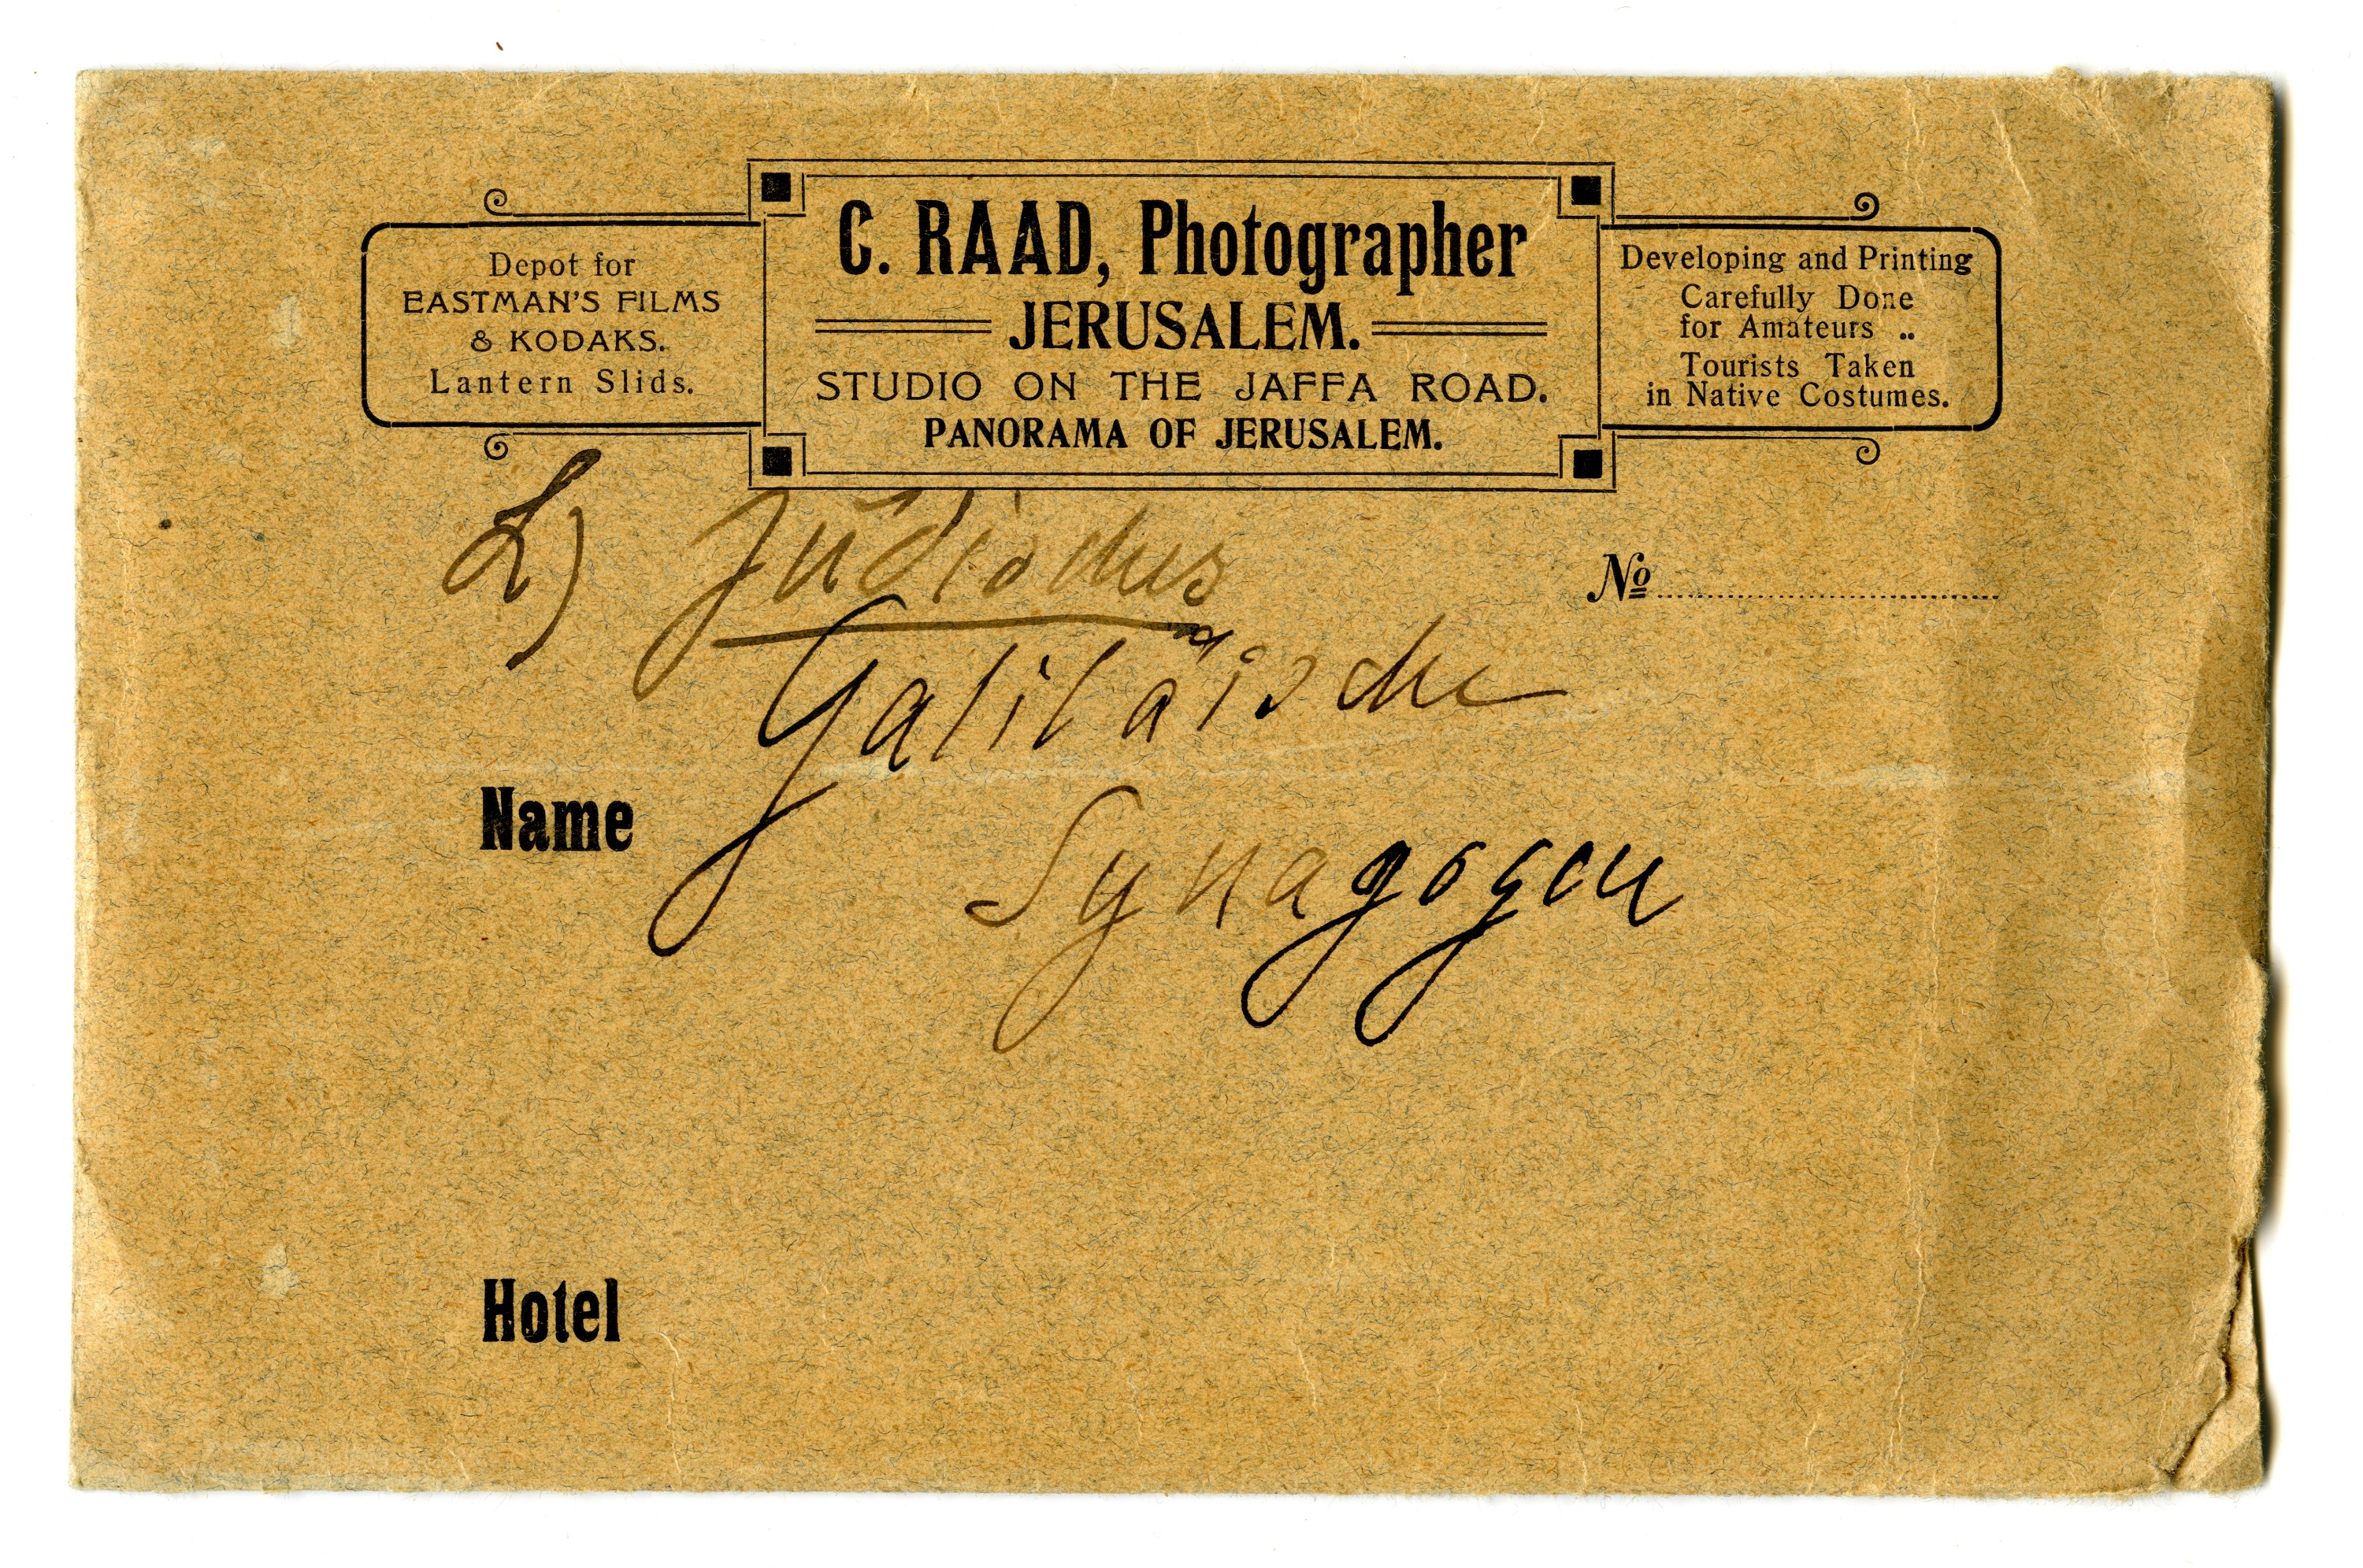 Depot for
EASTMAN'S FILMS
& KODAKS.
Lantern Slids.
C. RAAD, Photographer
JERUSALEM.
STUDIO ON THE JAFFA ROAD.
PANORAMA OF JERUSALEM.
Developing and Printing
Carefully Done
for Amateurs ..
Tourists Taken
in Native Costumes.
L) Jüdisches
Nº
Galiläische
Name
Synagogen
Hotel